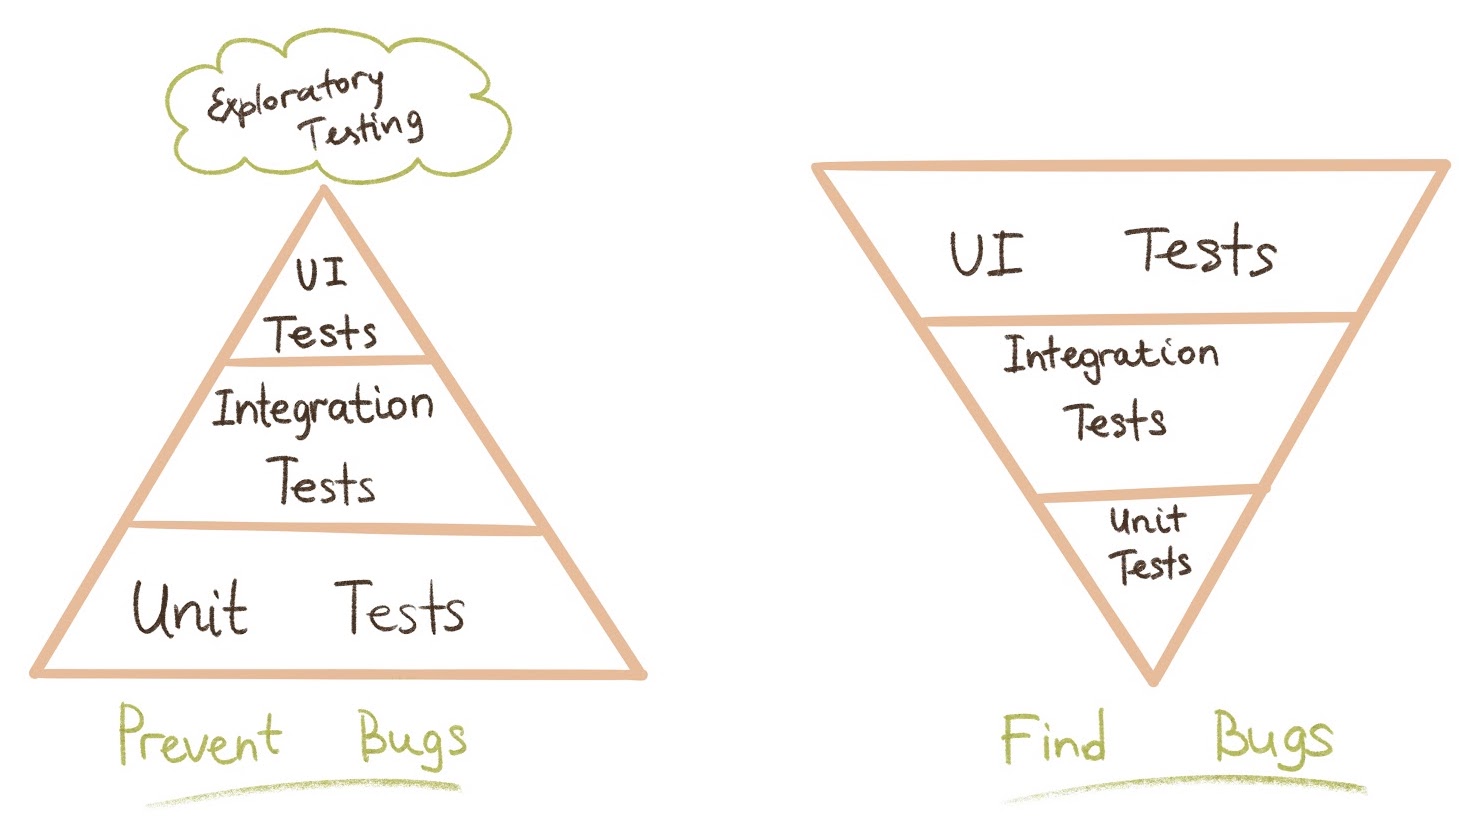 Exploratory
Testing
UI
Tests
Integration
Tests
Unit Tests
Prevent Bugs
UI Tests
Integration
Tests
Unit
Tests
Find Bugs